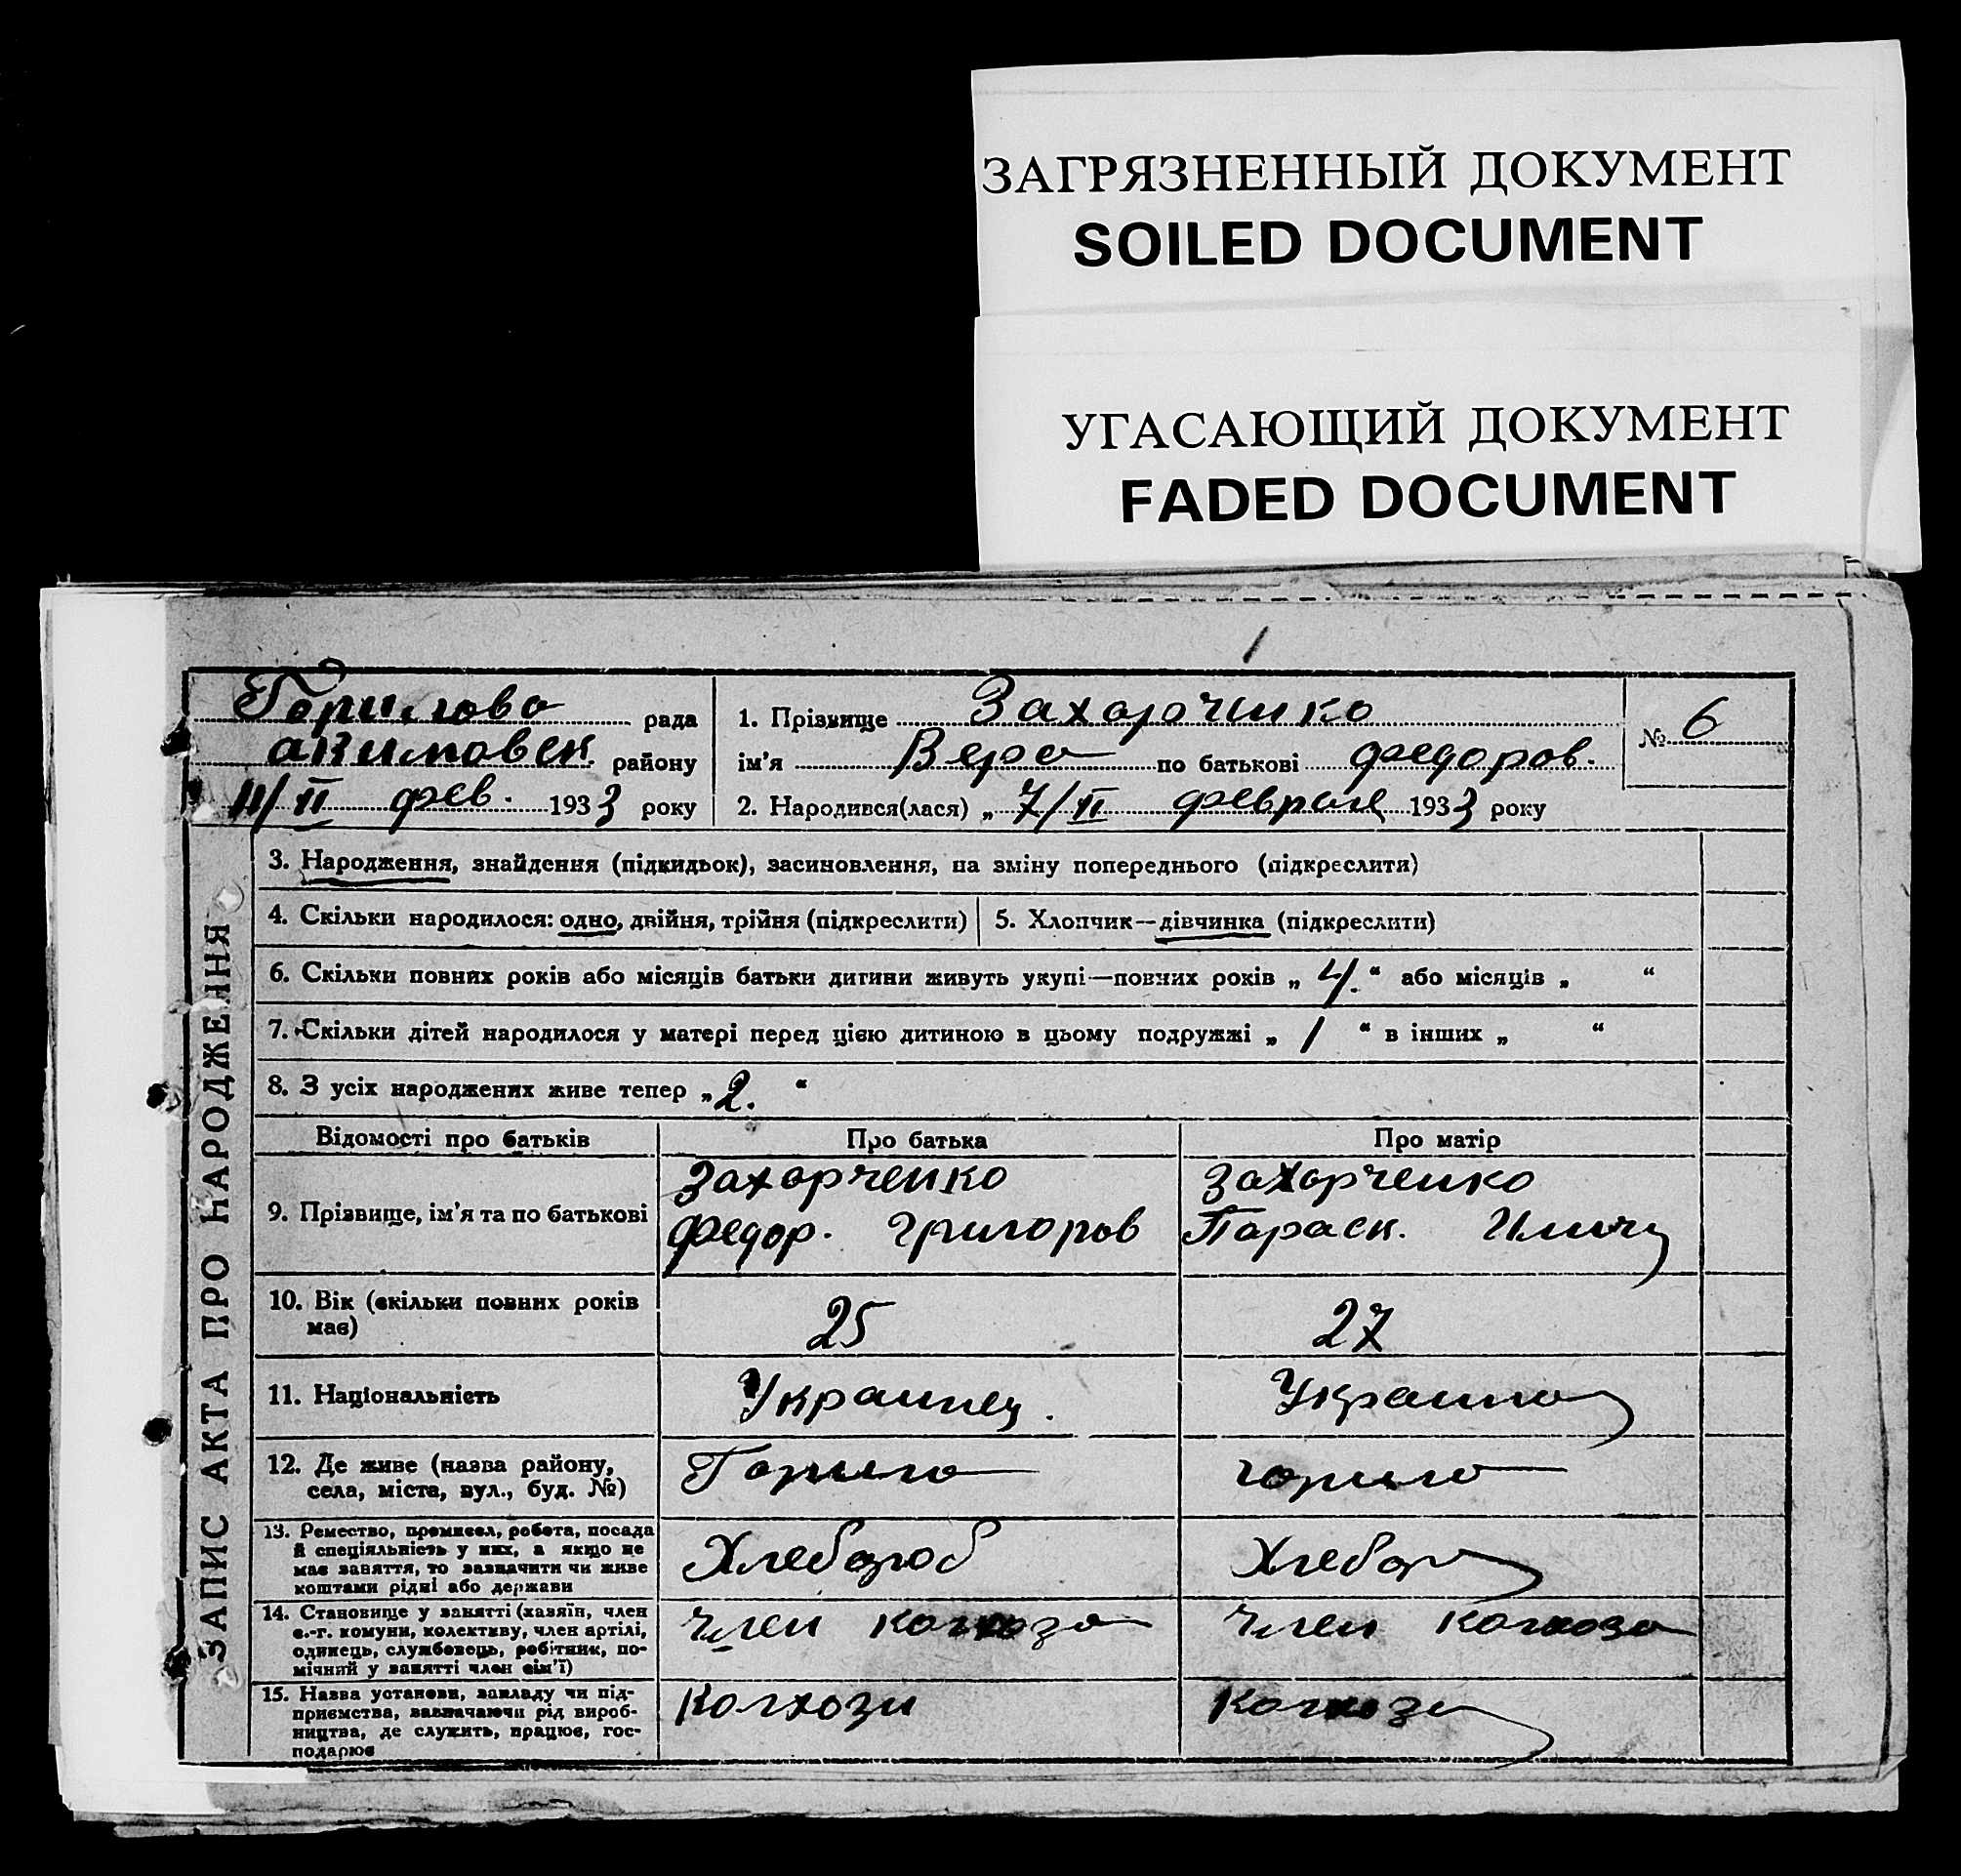 ЗАГРЯЗНЕННЫЙ ДОКУМЕНТ
SOILED DOCUMENT
УГАСАЮЩИЙ ДОКУМЕНТ
FADED DOCUMENT
ЗАПИС АКТА ПРО НАРОДЖЕННЯ
рада
акимовск. району
11/II фев. 1933 року
1. Прізвище Захарченко
№ 6
ім'я Вера по батькові Федоров.
2. Народився(лася) „ 7/II февраля 1933 року
3. Народження, знайдення (підкидьок), засиновлення, на зміну попереднього (підкреслити)
4. Скільки народилося: одно, двійня, трійня (підкреслити) 5. Хлопчик—дівчинка (підкреслити)
6. Скільки повних років або місяців батьки дитини живуть укупі—повних років „ 4. “ або місяців „ “
7. Скільки дітей народилося у матері перед цією дитиною в цьому подружжі „ 1 “ в інших „ “
8. З усіх народжених живе тепер „ 2. “
Відомості про батьків Про батька Про матір
9. Прізвище, ім'я та по батькові
Захарченко
Федор. Григоров
Захарченко
Параск.
10. Вік (скільки повних років
має)
25
27
11. Національність
Украинец.
12. Де живе (назва району,
села, міста, вул., буд. №)
13. Ремество, промисел, робота, посада
й спеціяльність у них, а якщо не
має заняття, то зазначити чи живе
коштами рідні або держави
Хлебороб
14. Становище у занятті (хазяїн, член
с.-г. комуни, колективу, член артілі,
одинець, службовець, робітник, по-
мічний у занятті член сім'ї)
Член колхоза
Член колхоза
15. Назва установи, закладу чи під-
приємства, зазначаючи рід вироб-
ництва, де служить, працює, гос-
подарює